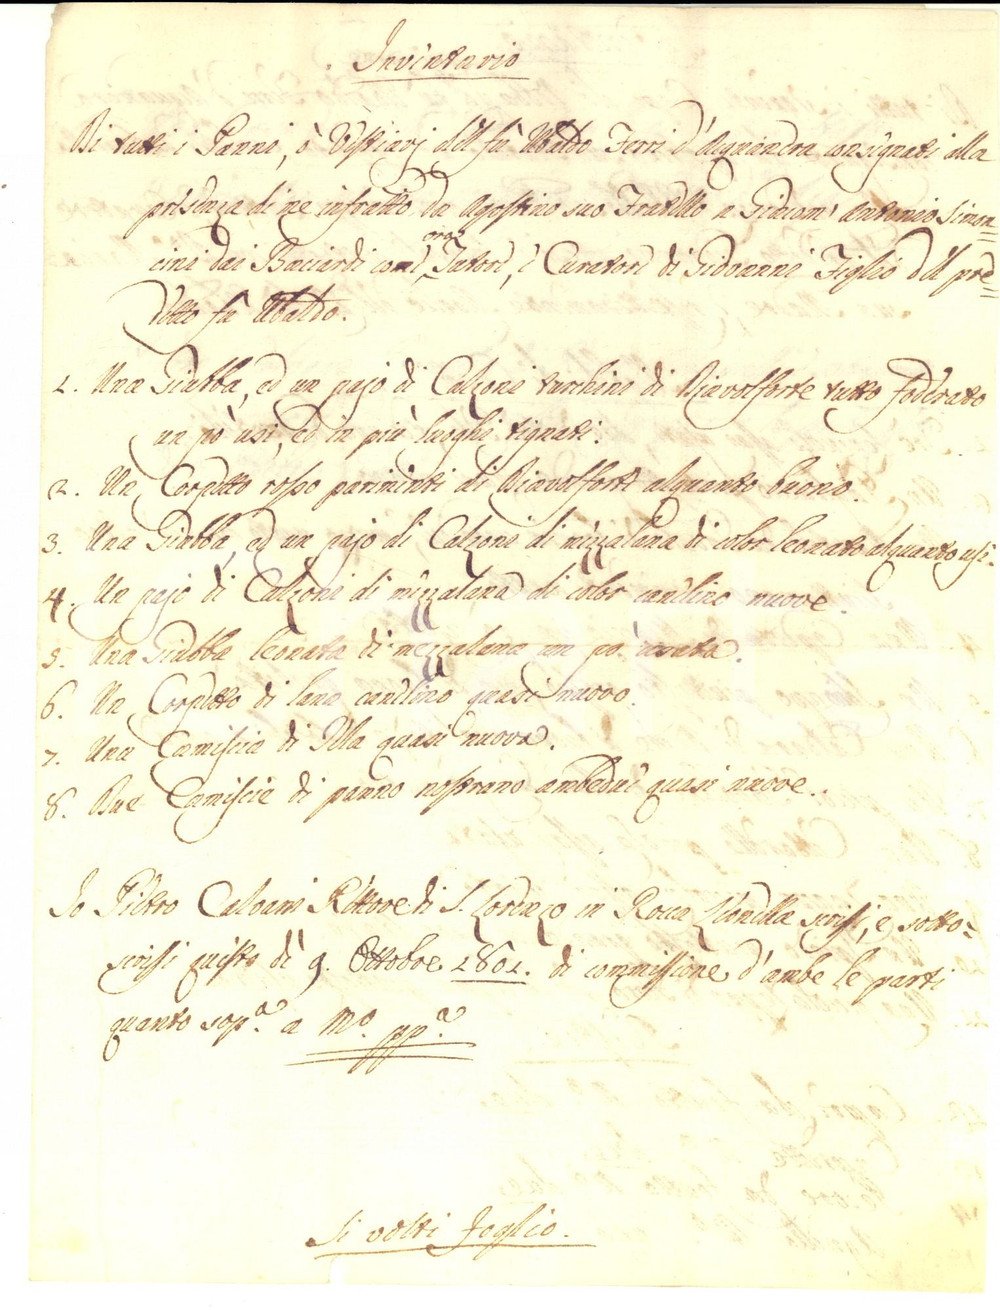 Inventario
Di tutti i Panni, o Vestiarj del fu Ubaldo Ferri d'Aquinondra consegnati alla
presenza di me infratto da Agostino suo Fratello a Giacom' Antonio Simon=
cini dai Baciardi come Tutori, e Curatori di Giovanni Figlio del pre=
detto fu Ubaldo.
1. Una Giubba, ed un pajo di Calzoni turchini di Diavolforte tutto foderato
un pò usi, ed in più luoghi tignati.
2. Un Corpetto rosso parimenti di Diavolforte alquanto buono.
3. Una Giubba, ed un pajo di Calzoni di mezzalana di color leonato alquanto usi.
4. Un pajo di Calzoni di mezzalana di color canelino nuove.
5. Una Giubba leonata di mezzalana un pò usata.
6. Un Corpetto di lana canelino quasi nuovo.
7. Una Camiscia di Tela quasi nuova.
8. Due Camiscie di panno nostrano ambedue quasi nuove.
Io Pietro Calvani Rettore di S. Lorenzo in Rocca Leonella scrissi, e sotto=
scrissi questo dì 9. Ottobre 1801. di commissione d'ambe le parti
quanto sop.ª a Mº. pp.ª
Si volti foglio.